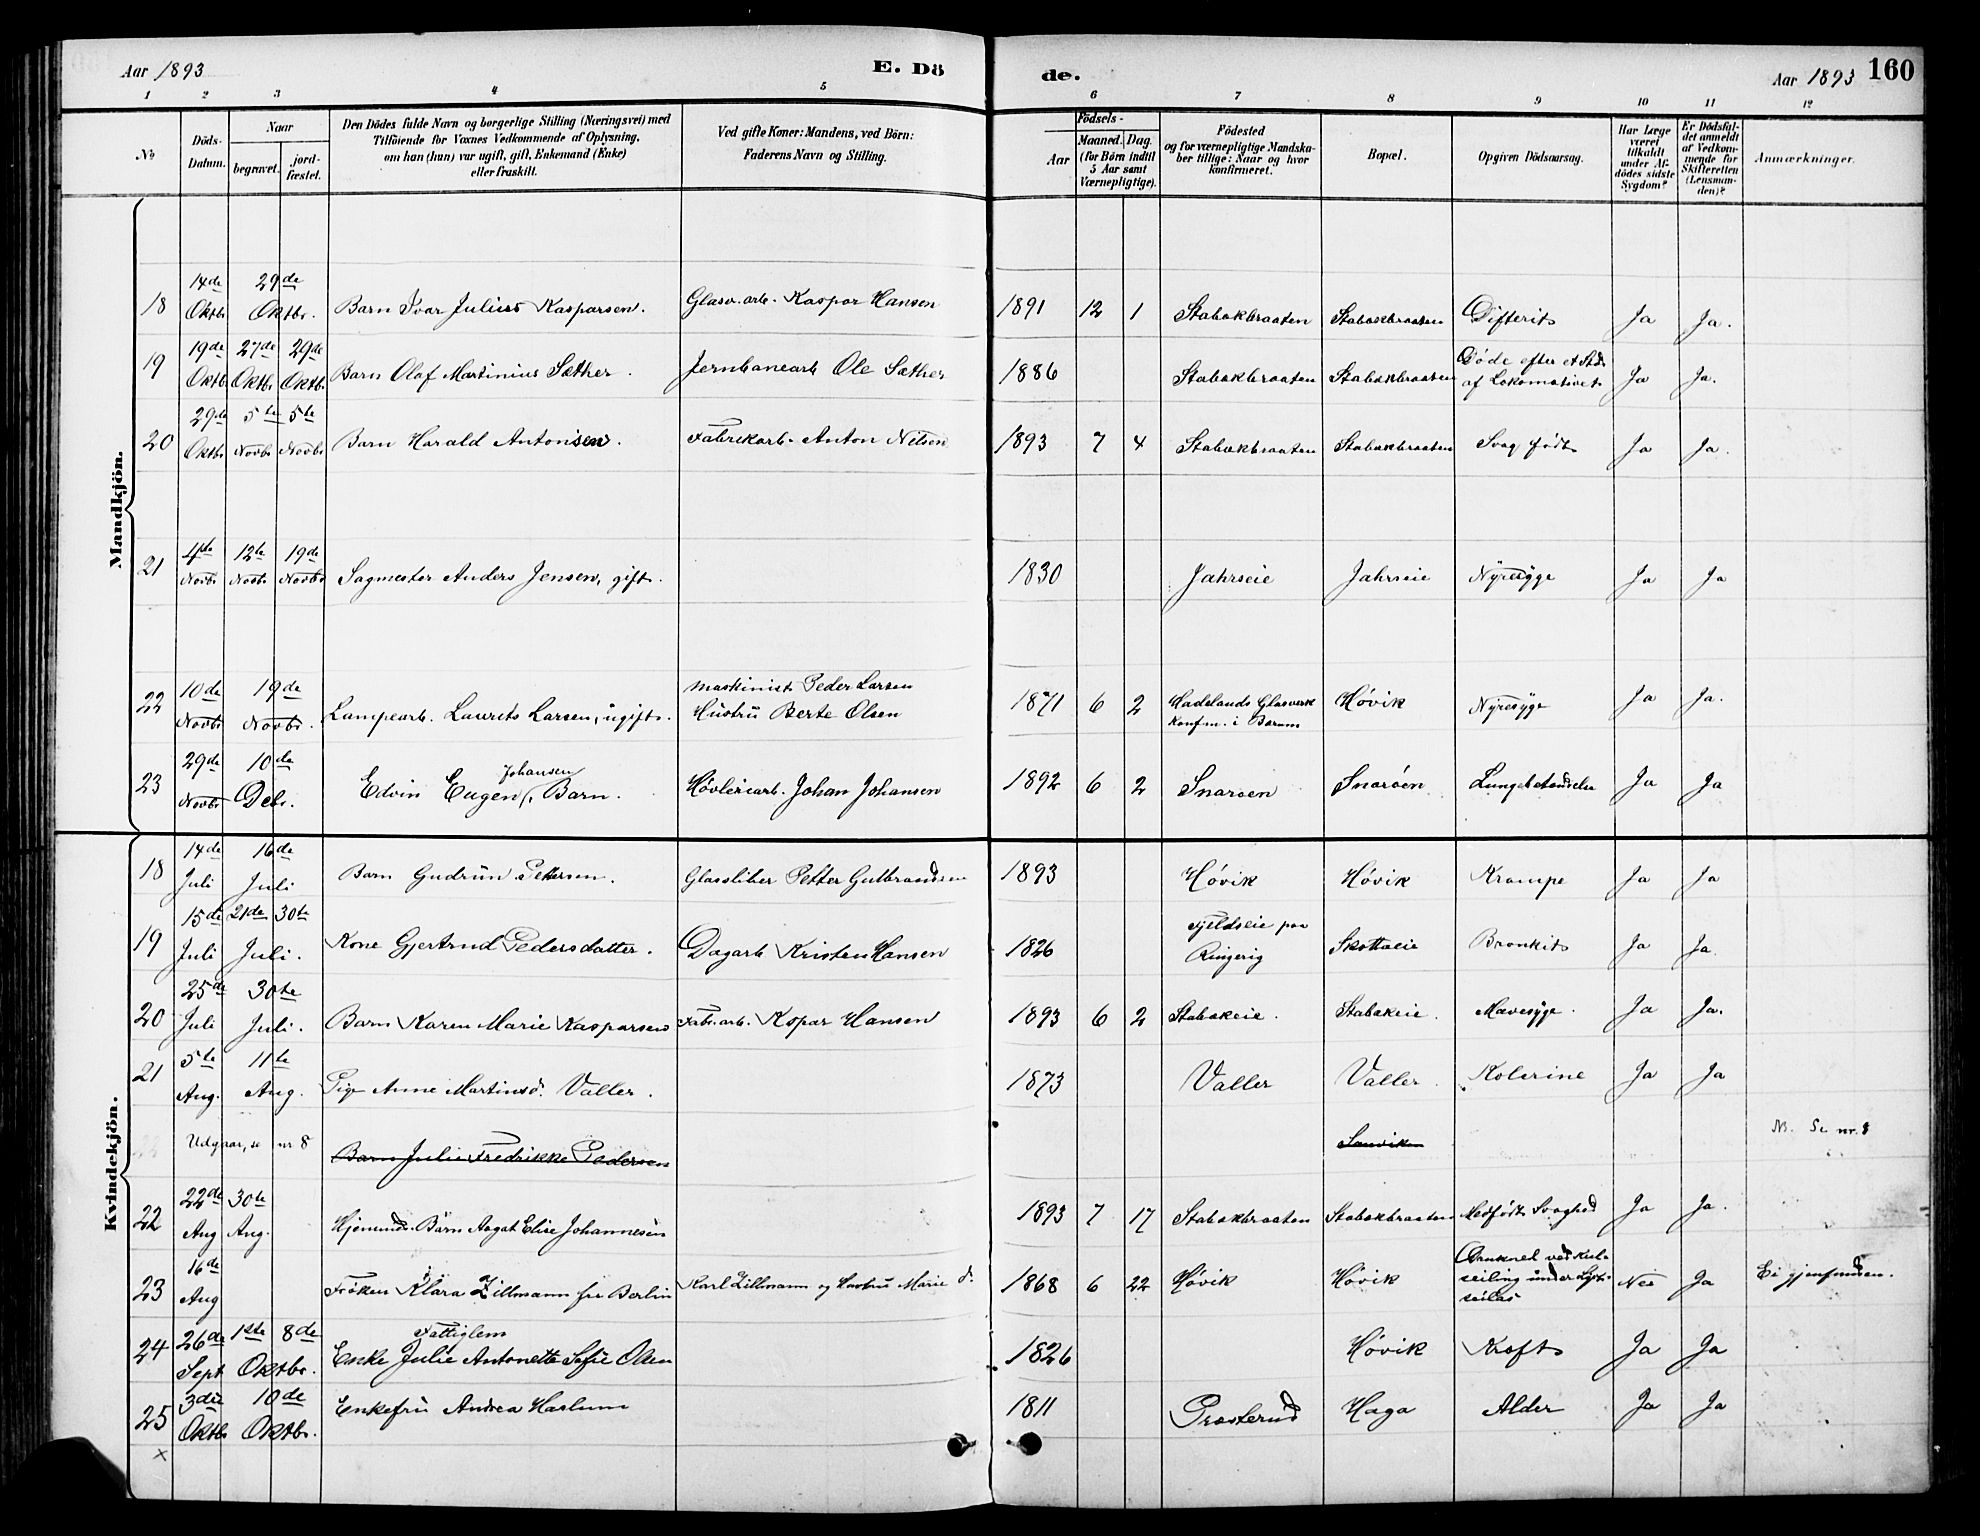 Aar 1893
E. Dö
de.
Aar 1893
160
1 2 3 4 5 6 7 8 9 10 11 12
No
Döds-
Datum.
Naar
begravet.
jord-
fæstet.
Den Dödes fulde Navn og borgerlige Stilling (Næringsvei) med
Tilföiende for Voxnes Vedkommende af Oplysning,
om han (hun) var ugift, gift, Enkemand (Enke)
eller fraskilt.
Ved gifte Koner: Mandens, ved Börn:
Faderens Navn og Stilling.
Födsels-
Aar
Maaned. Dag.
(for Börn indtil
5 Aar samt
Værnepligtige).
Födested
og for værnepligtige Mandska-
ber tillige: Naar og hvor
konfirmeret.
Bopæl.
Opgiven Dödsaarsag.
Har Læge
været
tilkaldt
under Af-
dödes sidste
Sygdom?
Er Dödsfal-
det anmeldt
af Vedkom-
mende for
Skifteretten
(Lensman-
den)?
Anmærkninger.
Mandkjön.
18 14de Oktbr 29de Oktbr. Barn Ivar Julius Kasparsen. Glasv.arb. Kaspar Hansen 1891 12 1 Stabækbraaten Stabækbraaten Difterit Ja Ja.
19 19de Oktbr 27de Oktbr 29de Oktbr Barn Olaf Martinius Sæther. Jernbanearb Ole Sæther 1886 Stabækbraaten Stabækbraaten Døde efter et Stød
af Lokomotivet Ja Ja.
20 29de Oktbr 5te Novbr 5te Novbr Barn Harald Antonisen. Fabrikarb. Anton Nilsen 1893 7 4 Stabækbraaten Stabækbraaten Svag født Ja Ja.
21 4de Novbr 12te Novbr 19de Novbr Sagmester Anders Jensen, gift. 1830 Jahrseie Jahrseie Nyresyge Ja Ja
22 10de Novbr 19de Novbr. Lampearb. Laurits Larsen, ugift. Maskinist Peder Larsen
Hustru Berte Olsen 1871 6 2 Hadelands Glasværk
Konfm. i Bærum Høvik Nyresyge Ja Ja.
23 29de Novbr 10de Debr. Edvin Eugen Johansen, Barn. Høvleriarb. Johan Johansen 1892 6 2 Snarøen Snarøen Lungebetændelse Ja Ja
Kvindekjön.
18 14de Juli 16de Juli Barn Gudrun Petersen. Glassliber Petter Gulbrandsen 1893 Høvik Høvik Krampe Ja Ja
19 15de Juli 21de 30te Juli. Kone Gjertrud Pedersdatter. Dagarb Kristen Hansen 1826 Fjeldseie paa
Ringerig Skottaeie Bronkit Ja Ja.
20 25de Juli 30te Juli. Barn Karen Marie Kasparsen Fabr.arb. Kspar Hansen 1893 6 2 Stabækeie. Stabækeie. Mavesyge. Ja Ja.
21 5te Aug. 11te Aug. Pige Anne Martinsd. Valler. 1873 Valler Valler. Kolerine Ja Ja
Udgaar, se nr 8 Barn Julie Fredrikke Pedersen Sanviken NB. Se nr. 8
22 22de Aug 30te Aug. Hjemmd. Barn Aagat Elise Johannesen 1893 7 17 Stabækbraaten Stabækbraaten Medfødt Svaghed Ja Ja.
23 16de Aug Frøken Klara Zillmann fra Berlin Karl Zillmann og Hustru Marie 1868 6 22 Høvik Høvik Druknet ved Kul-
seiling under Lyst-
seilas Nei Ja Ei gjenfunden.
24 26de Sept 1ste 8de Oktbr. Fattiglem
Enke Julie Antonette Sofie Olsen 1826 Høvik Kræft Ja Ja
25 3die Oktbr 10de Oktbr. Enkefru Andrea Harlum 1811 Præsterud Haga Alder Ja Ja
x